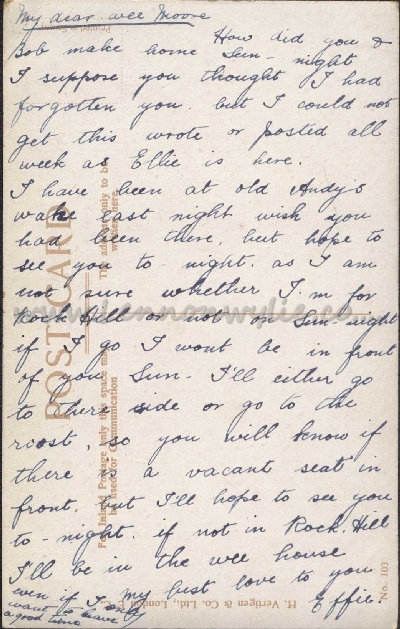 My dear wee Moore
How did you &
Bob make home Sun- night
I suppose you thought I had
forgotten you. but I could not
get this wrote or posted all
week as Ellie is here.
I have been at old Andy's
wake last night wish you
had been there, but hope to
see you to-night. as I am
not sure whether I'm for
Rock Hill or not on Sun-night
if I go I wont be in front
of you Sun- I'll either go
to there side or go to the
roost, so you will know if
there is a vacant seat in
front. but I'll hope to see you
to-night. if not in Rock. Hill
I'll be in the wee house
my best love to you
Effie.
even if I only
want to have
a good time
POST CARD
For Inland Postage only this space may
be used for Communication
The address only to be
written here.
H. Vertigen & Co. Ltd., London E.C.
No. 103